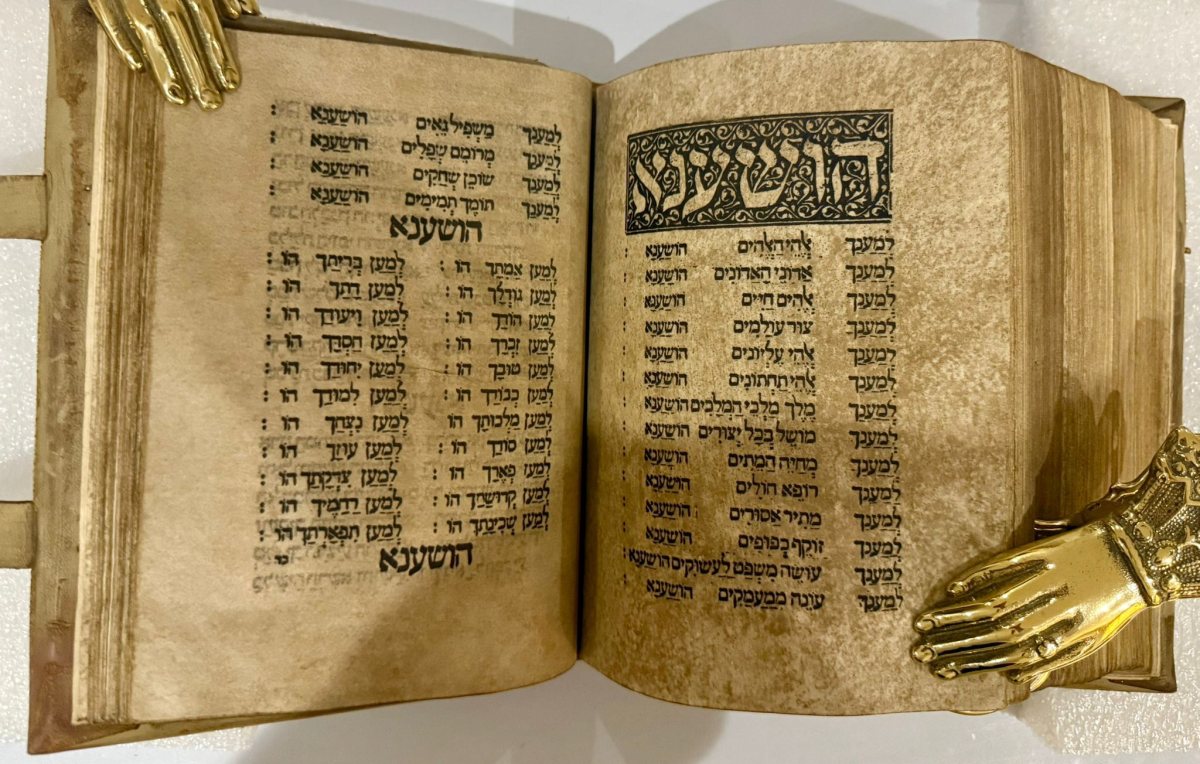 הושענא
לְמַעֲנָךְ אֱלֹהֵי הָאֱלֹהִים הושַׁעֲנָא :
לְמַעֲנָךְ אֲדוֹנֵי הָאֲדוֹנִים הושַׁעֲנָא :
לְמַעֲנָךְ אֱלֹהִים חַיִּים הושַׁעֲנָא :
לְמַעֲנָךְ צוּר עוֹלָמִים הושַׁעֲנָא :
לְמַעֲנָךְ אֱלֹהֵי עֶלְיוֹנִים הושַׁעֲנָא :
לְמַעֲנָךְ אֱלֹהֵי תַחְתּוֹנִים הושַׁעֲנָא :
לְמַעֲנָךְ מֶלֶךְ מַלְכֵי הַמְּלָכִים הושַׁעֲנָא
לְמַעֲנָךְ מוֹשֵׁל בְּכָל יְצוּרִים הושַׁעֲנָא :
לְמַעֲנָךְ מְחַיֵּה הַמֵּתִים הושַׁעֲנָא :
לְמַעֲנָךְ רוֹפֵא חוֹלִים הושַׁעֲנָא :
לְמַעֲנָךְ מַתִּיר אֲסוּרִים הושַׁעֲנָא :
לְמַעֲנָךְ זוֹקֵף כְּפוּפִים הושַׁעֲנָא :
לְמַעֲנָךְ עוֹשֶׂה מִשְׁפָּט לַעֲשׁוּקִים הושַׁעֲנָא :
לְמַעֲנָךְ עוֹנֶה מִמַּעֲמַקִּים הושַׁעֲנָא :
לְמַעֲנָךְ מַשְׁפִּיל גֵּאִים הושַׁעֲנָא :
לְמַעֲנָךְ מְרוֹמֵם שְׁפָלִים הושַׁעֲנָא :
לְמַעֲנָךְ שׁוֹכֵן שְׁחָקִים הושַׁעֲנָא :
לְמַעֲנָךְ תּוֹמֵךְ תְּמִימִים הושַׁעֲנָא :
הושענא
לְמַעַן אֲמִתָּךְ הו : לְמַעַן בְּרִיתָךְ הו :
לְמַעַן גּוֹדְלָךְ הו : לְמַעַן דָּתָךְ הו :
לְמַעַן הוֹדָךְ הו : לְמַעַן וִיעוּדָךְ הו :
לְמַעַן זִכְרָךְ הו : לְמַעַן חַסְדָּךְ הו :
לְמַעַן טוּבָךְ הו : לְמַעַן יִחוּדָךְ הו :
לְמַעַן כְּבוֹדָךְ הו : לְמַעַן לִמּוּדָךְ הו :
לְמַעַן מַלְכוּתָךְ הו לְמַעַן נִצְחָךְ הו :
לְמַעַן סוֹדָךְ הו : לְמַעַן עוּזָּךְ הו :
לְמַעַן פְּאֵרָךְ הו : לְמַעַן צִדְקָתָךְ הו :
לְמַעַן קְדוּשָּׁתָךְ הו : לְמַעַן רַחֲמֶיךָ הו :
לְמַעַן שְׁכִינָתָךְ הו : לְמַעַן תִּפְאַרְתָּךְ הו :
הושענא